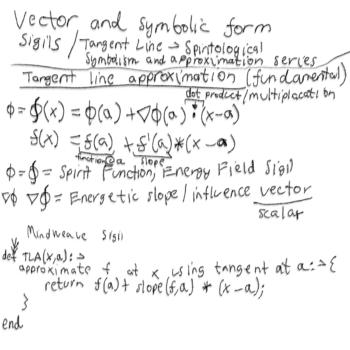 Vector and symbolic form
Sigils / Tangent Line → Spiritological
Symbolism and approximation series
Tangent line approximation (fundamental)
dot product/multiplacation
ϕ = ∮(x) = ϕ(a) + ∇ϕ(a) • (x-a)
f(x) = f(a) + f'(a) * (x - a)
function @ a slope
ϕ = ∮ = Spirit Function, Energy Field Sigil
∇ϕ ∇∮ = Energetic slope / influence vector
scalar
Mindweave Sigil
def TLA(x,a): →
approximate f at x using tangent at a: → {
return f(a) + slope(f,a) * (x-a);
}
end